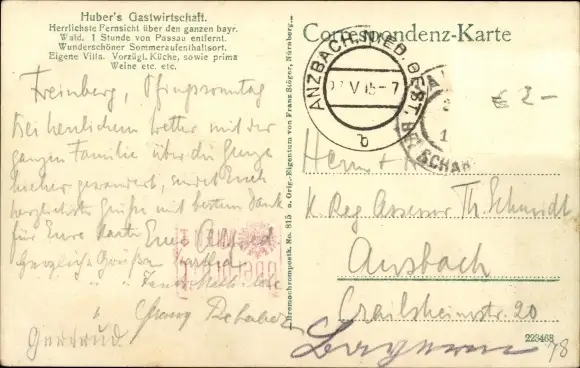 Huber's Gastwirtschaft.
Herrlichste Fernsicht über den ganzen bayr.
Wald. 1 Stunde von Passau entfernt.
Wunderschöner Sommeraufenthaltsort.
Eigene Villa. Vorzügl. Küche, sowie prima
Weine etc. etc.
Freinberg, Pfingstsonntag
Bei herrlichem Wetter mit der
ganzen Familie über die Grenze
hieher gewandert, sendet Euch
herzlichste Grüße mit bestem Dank
für Eure Karte Euer Alfred
Herzliche Grüßen
" " "
Georg
Gertrud
Correspondenz-Karte
ANZBACH, NIED. ÖST.
V 15-7
b
SCHAR
€ 2-
Herrn
K. Reg Assessor Th. Schmidt
Ansbach
Crailsheimstr. 20
Bayern
78
223468
Bremochrompostk. No. 815 a. Orig.-Eigentum von Franz Stöger, Nürnberg